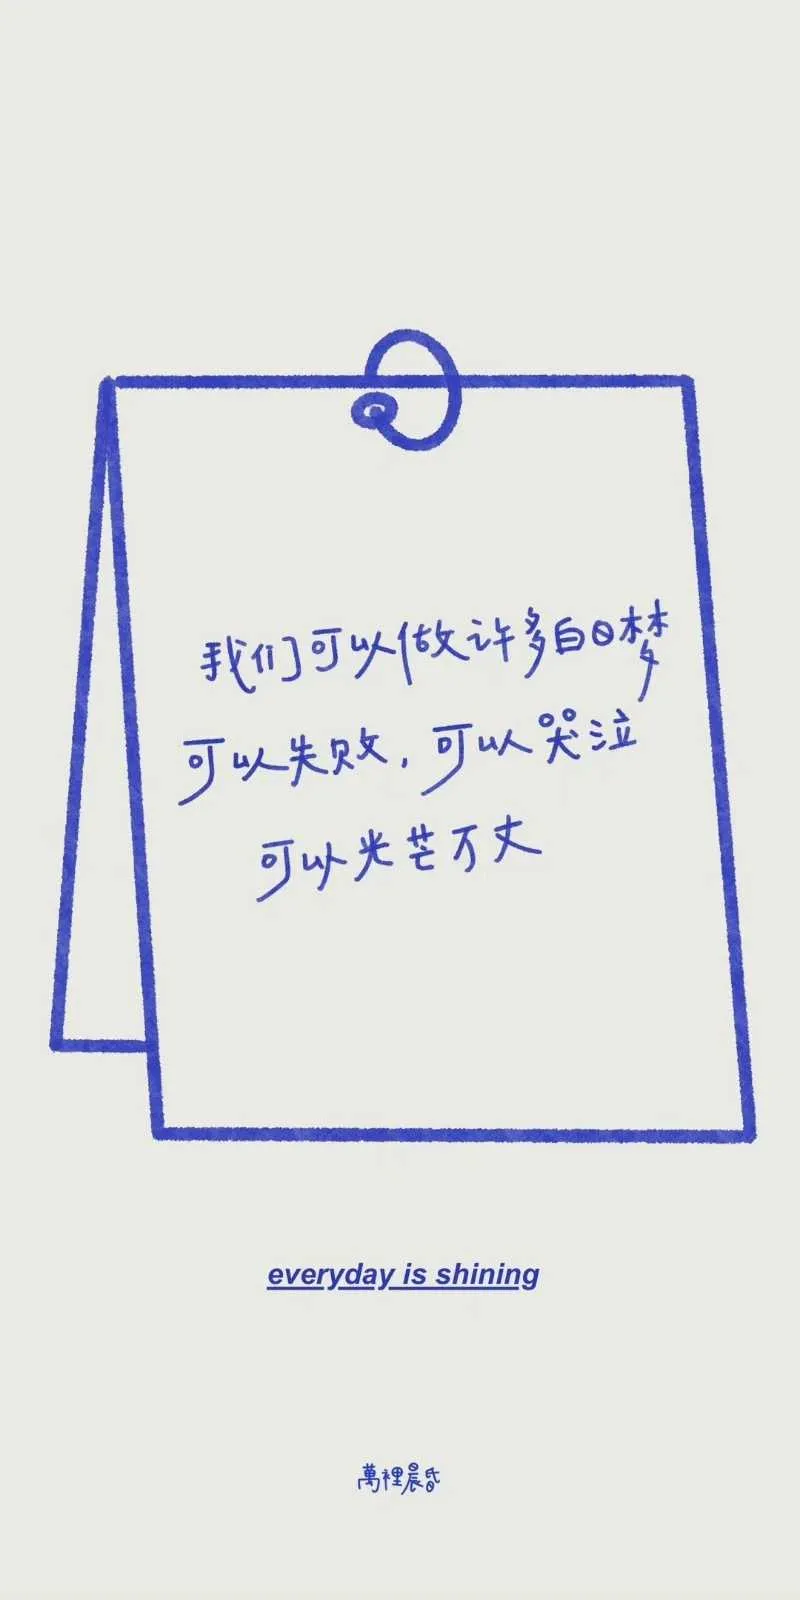 我们可以做许多白日梦
可以失败，可以哭泣
可以光芒万丈
everyday is shining
萬裡晨昏